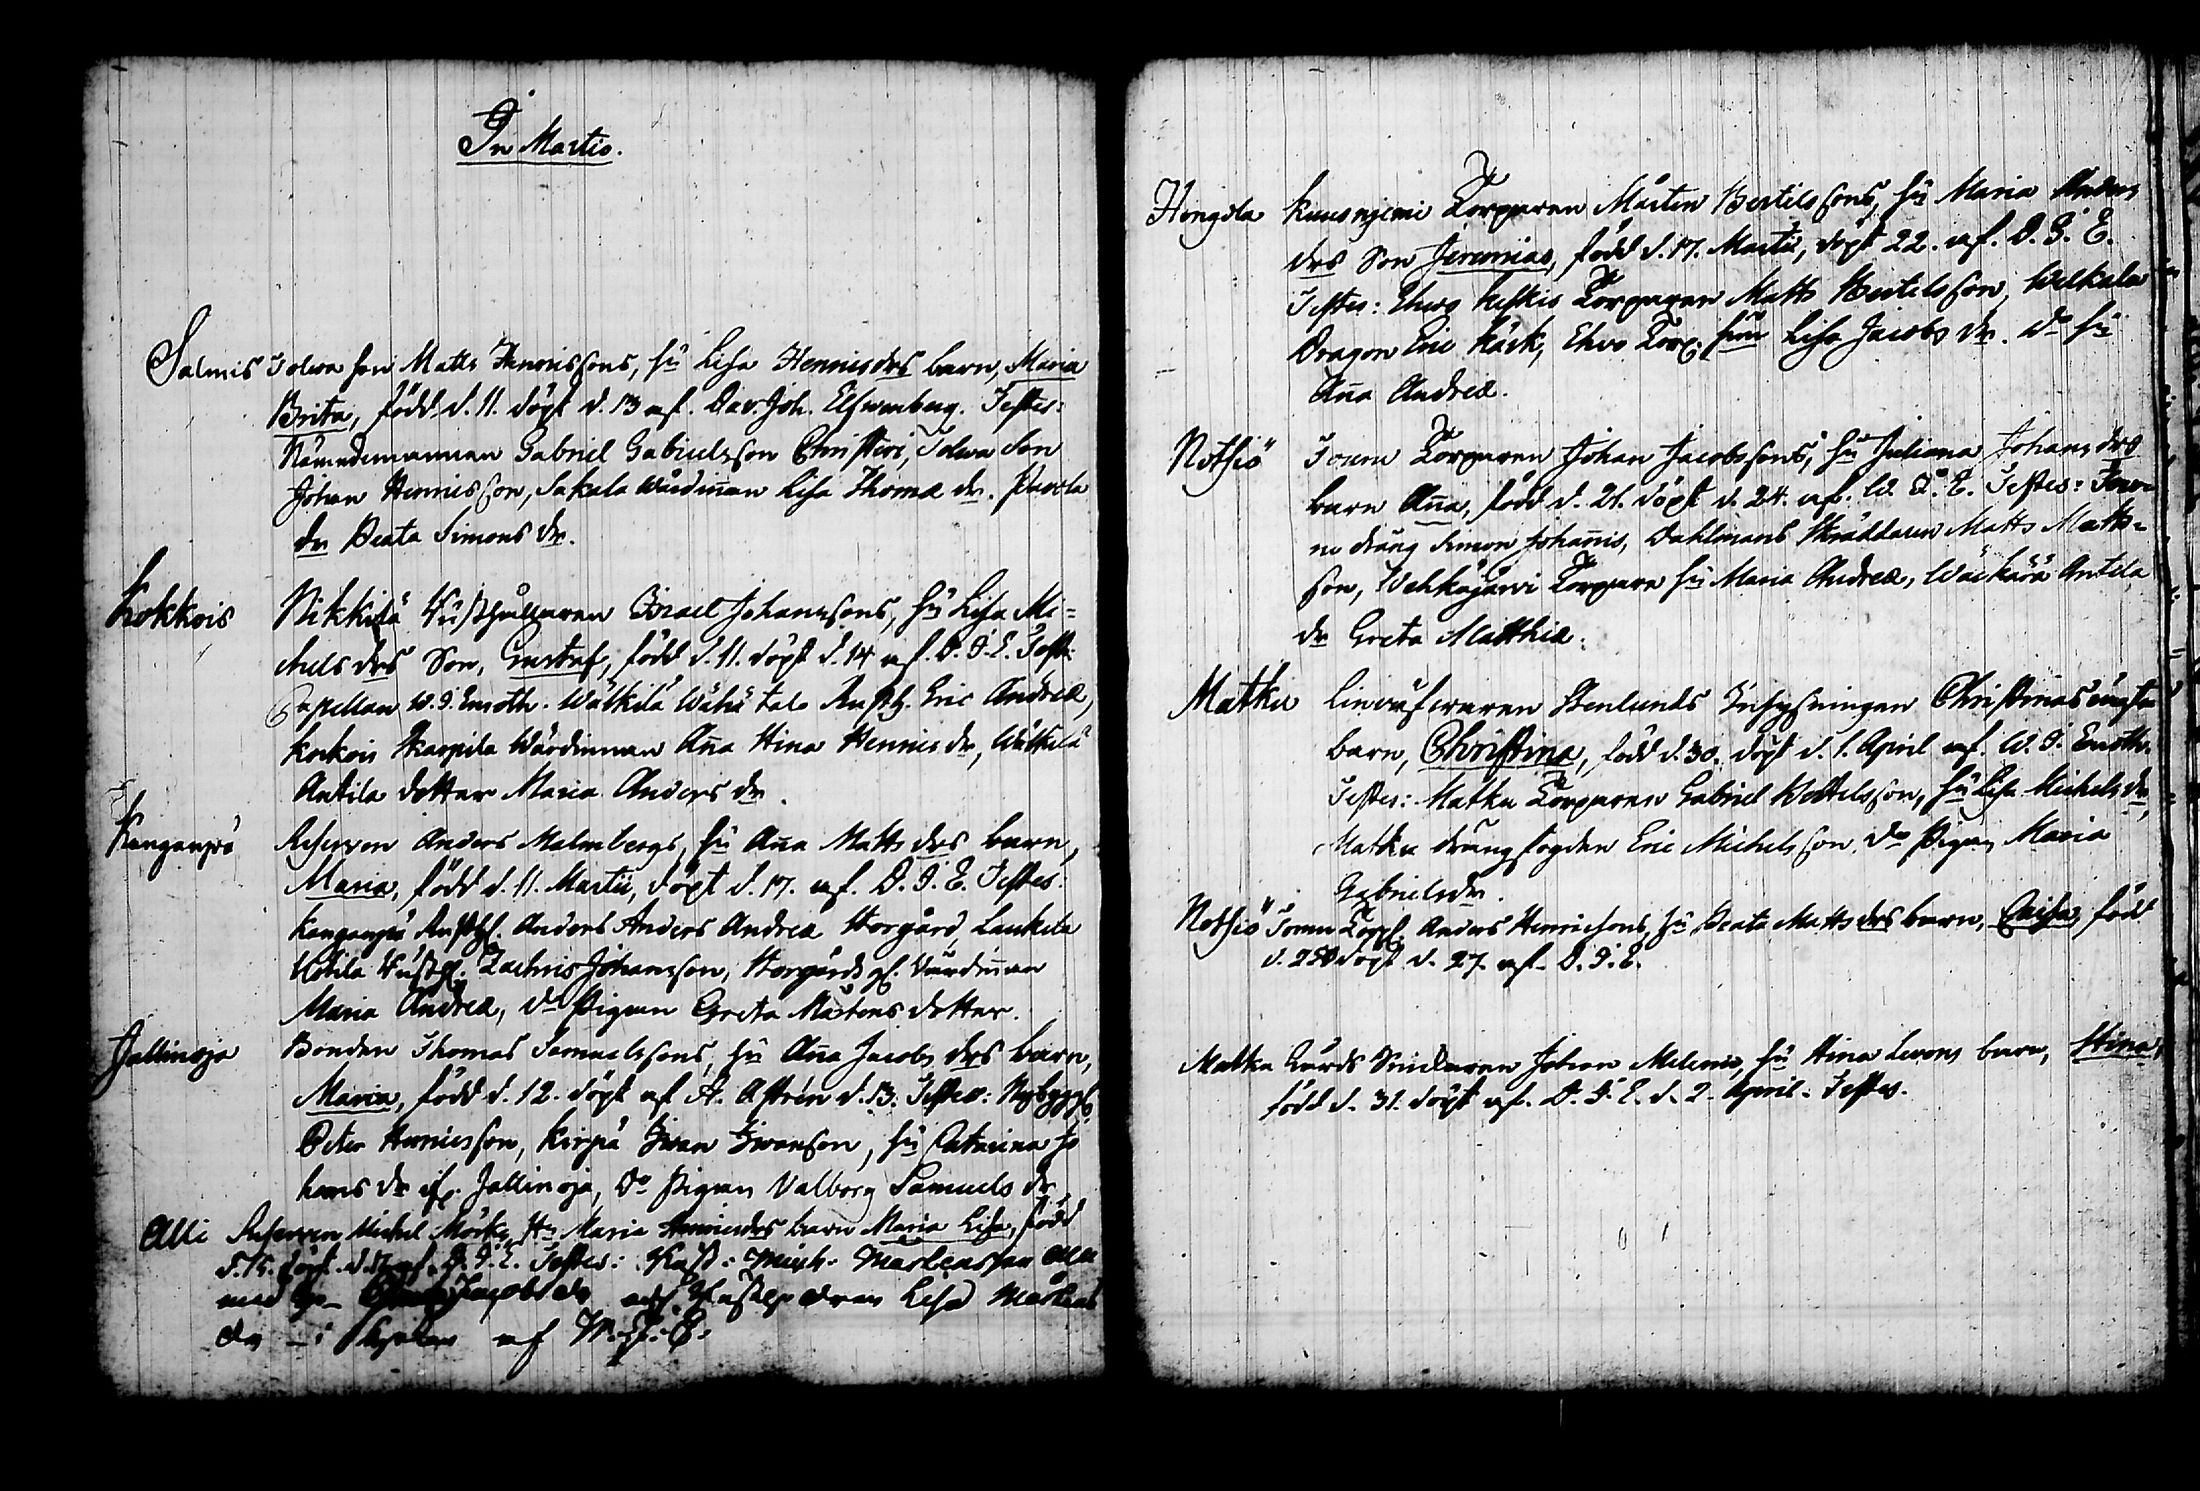 In Martio.
Salmis Tolwa son Matts Henricssons, hu Lisa Henricsdrs barn, Maria
Brita, född d. 11. döpt d. 13 af. Dav. Joh. Elfwenberg. Testes:
Nämndemannen Gabriel Gabrielsson Christeri, Tolwa Son
Johan Henricsson, Sakala Wärdinnan Lisa Thomæ dr. Pawola
dr Beata Simons dr.
Kokkois Nikkilä Rusthollaren Israel Johanssons, hu Lisa Mi=
chels drs Son, Gustaf, född d. 11. döpt d. 14 af. D. I. E. Test:
Capellan W. I. Enroth. Wätkilä Wähä talo Rusth. Eric Andreæ,
Kockois Skarpila Wärdinnan Aña Stina Henrics dr, Wätkilä
Antila dotter Maria Anders dr.
Kanganpä Reserven Anders Malmbergs, hu Aña Matts drs barn,
Maria, född d. 11. Martii, döpt d. 17. af. D. I. E. Testes:
Kanganpä Rusth. Anders Anders Andreæ Storgård, Laukela
Rusth. Zachris Johansson, Storgårds Wärdiñan
Maria Andreæ, Do Pigan Greta Mårtens dotter.
Jallinoja Bonden Thomas Samuelssons, hu Aña Jacobs drs barn,
Maria, född d. 12. döpt af A. Astrén d. 13. Testes: Nybygg.
Peter Henricsson, Kirpä Iwan Iwansson, hu Catarina Jo
hans dr if. Jallinoja, Do Pigan Valborg Samuels dr
Alli Reserven Michel Mörks, hu Maria Henricsdrs barn Maria Lisa, född
d. 15. döpt. d. 17 af. D. I. E. Testes: Rust: Mich. Mårtensson Alli
med Jacobs dr och Lisa Mårtens
dr – i af W. I. E.
Hongola Kuusnjemi Torparen Mårten Bertilssons, hu Maria Anders
drs Son Jeremias, född d. 17. Martii, döpt 22. af. D. I. E.
Testes: Torparen Matts Bertelsson, Welkala
Dragon Eric Käck, Torp. hu Lisa Jacobs dr. Do hu
Aña Andreæ.
Notsiö Torparen Johan Jacobssons, hu Juliana Johans drs
barn Aña, född d. 21. döpt d. 24. af. W. I. E. Testes:
dräng Simon Johañis, Dahlmans Skräddaren Matts Matts=
son, Wehkajärwi Torpare hu Maria Andreæ, Antila
dr Greta Matthiæ.
Matku Linväfwaren Stenlunds Inhysningen Christinas oägta
barn, Christina, född d. 30. döpt d. 1. April af. W. I. Enroth.
Testes: Matku Torparen Gabriel hu Lisa Michels dr,
Matku drängfogden Eric Michelsson. Do Pigan Maria
Gabrielsdr.
Notsiö Torp. Anders Henricsons, hu Beata Matts drs barn, Caisa, född
d. 25 döpt d. 27. af. D. I. E.
Matku Gårds Smidaren Johan hu Stina barn, Stina,
född d. 31. döpt af. D. I. E. d. 2. April. Testes.